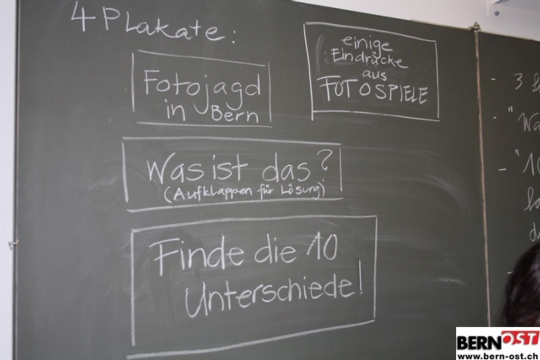 4 Plakate:
Fotojagd
in Bern
einige
Eindrücke
aus
FOTOSPIELE
Was ist das?
(Aufklappen für Lösung)
Finde die 10
Unterschiede!
- 3
- "Wa
- "10
BERNOST
www.bern-ost.ch